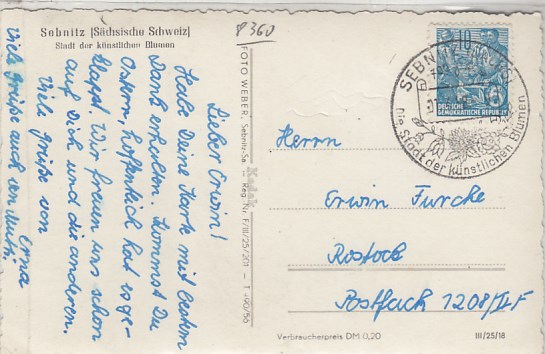 Sebnitz [Sächsische Schweiz]
Stadt der künstlichen Blumen
8360
Lieber Erwin!
Habe Deine Karte mit besten
Dank erhalten. Kommst Du
Ostern, hoffentlich hat es ge-
klappt. Wir freuen uns schon
auf Dich und die anderen.
Viele Grüße von
Erna
Viele Grüße auch an Mutti
FOTO WEBER, Sebnitz-Sa.
Reg. Nr. F/III/25/201 - 1 +90/56
10
DEUTSCHE
DEMOKRATISCHE REPUBLIK
SEBNITZ
Die Stadt der künstlichen Blumen
Herrn
Erwin Furcke
Rostock
Postfach 1208/II-F
Verbraucherpreis DM 0,20
III/25/18